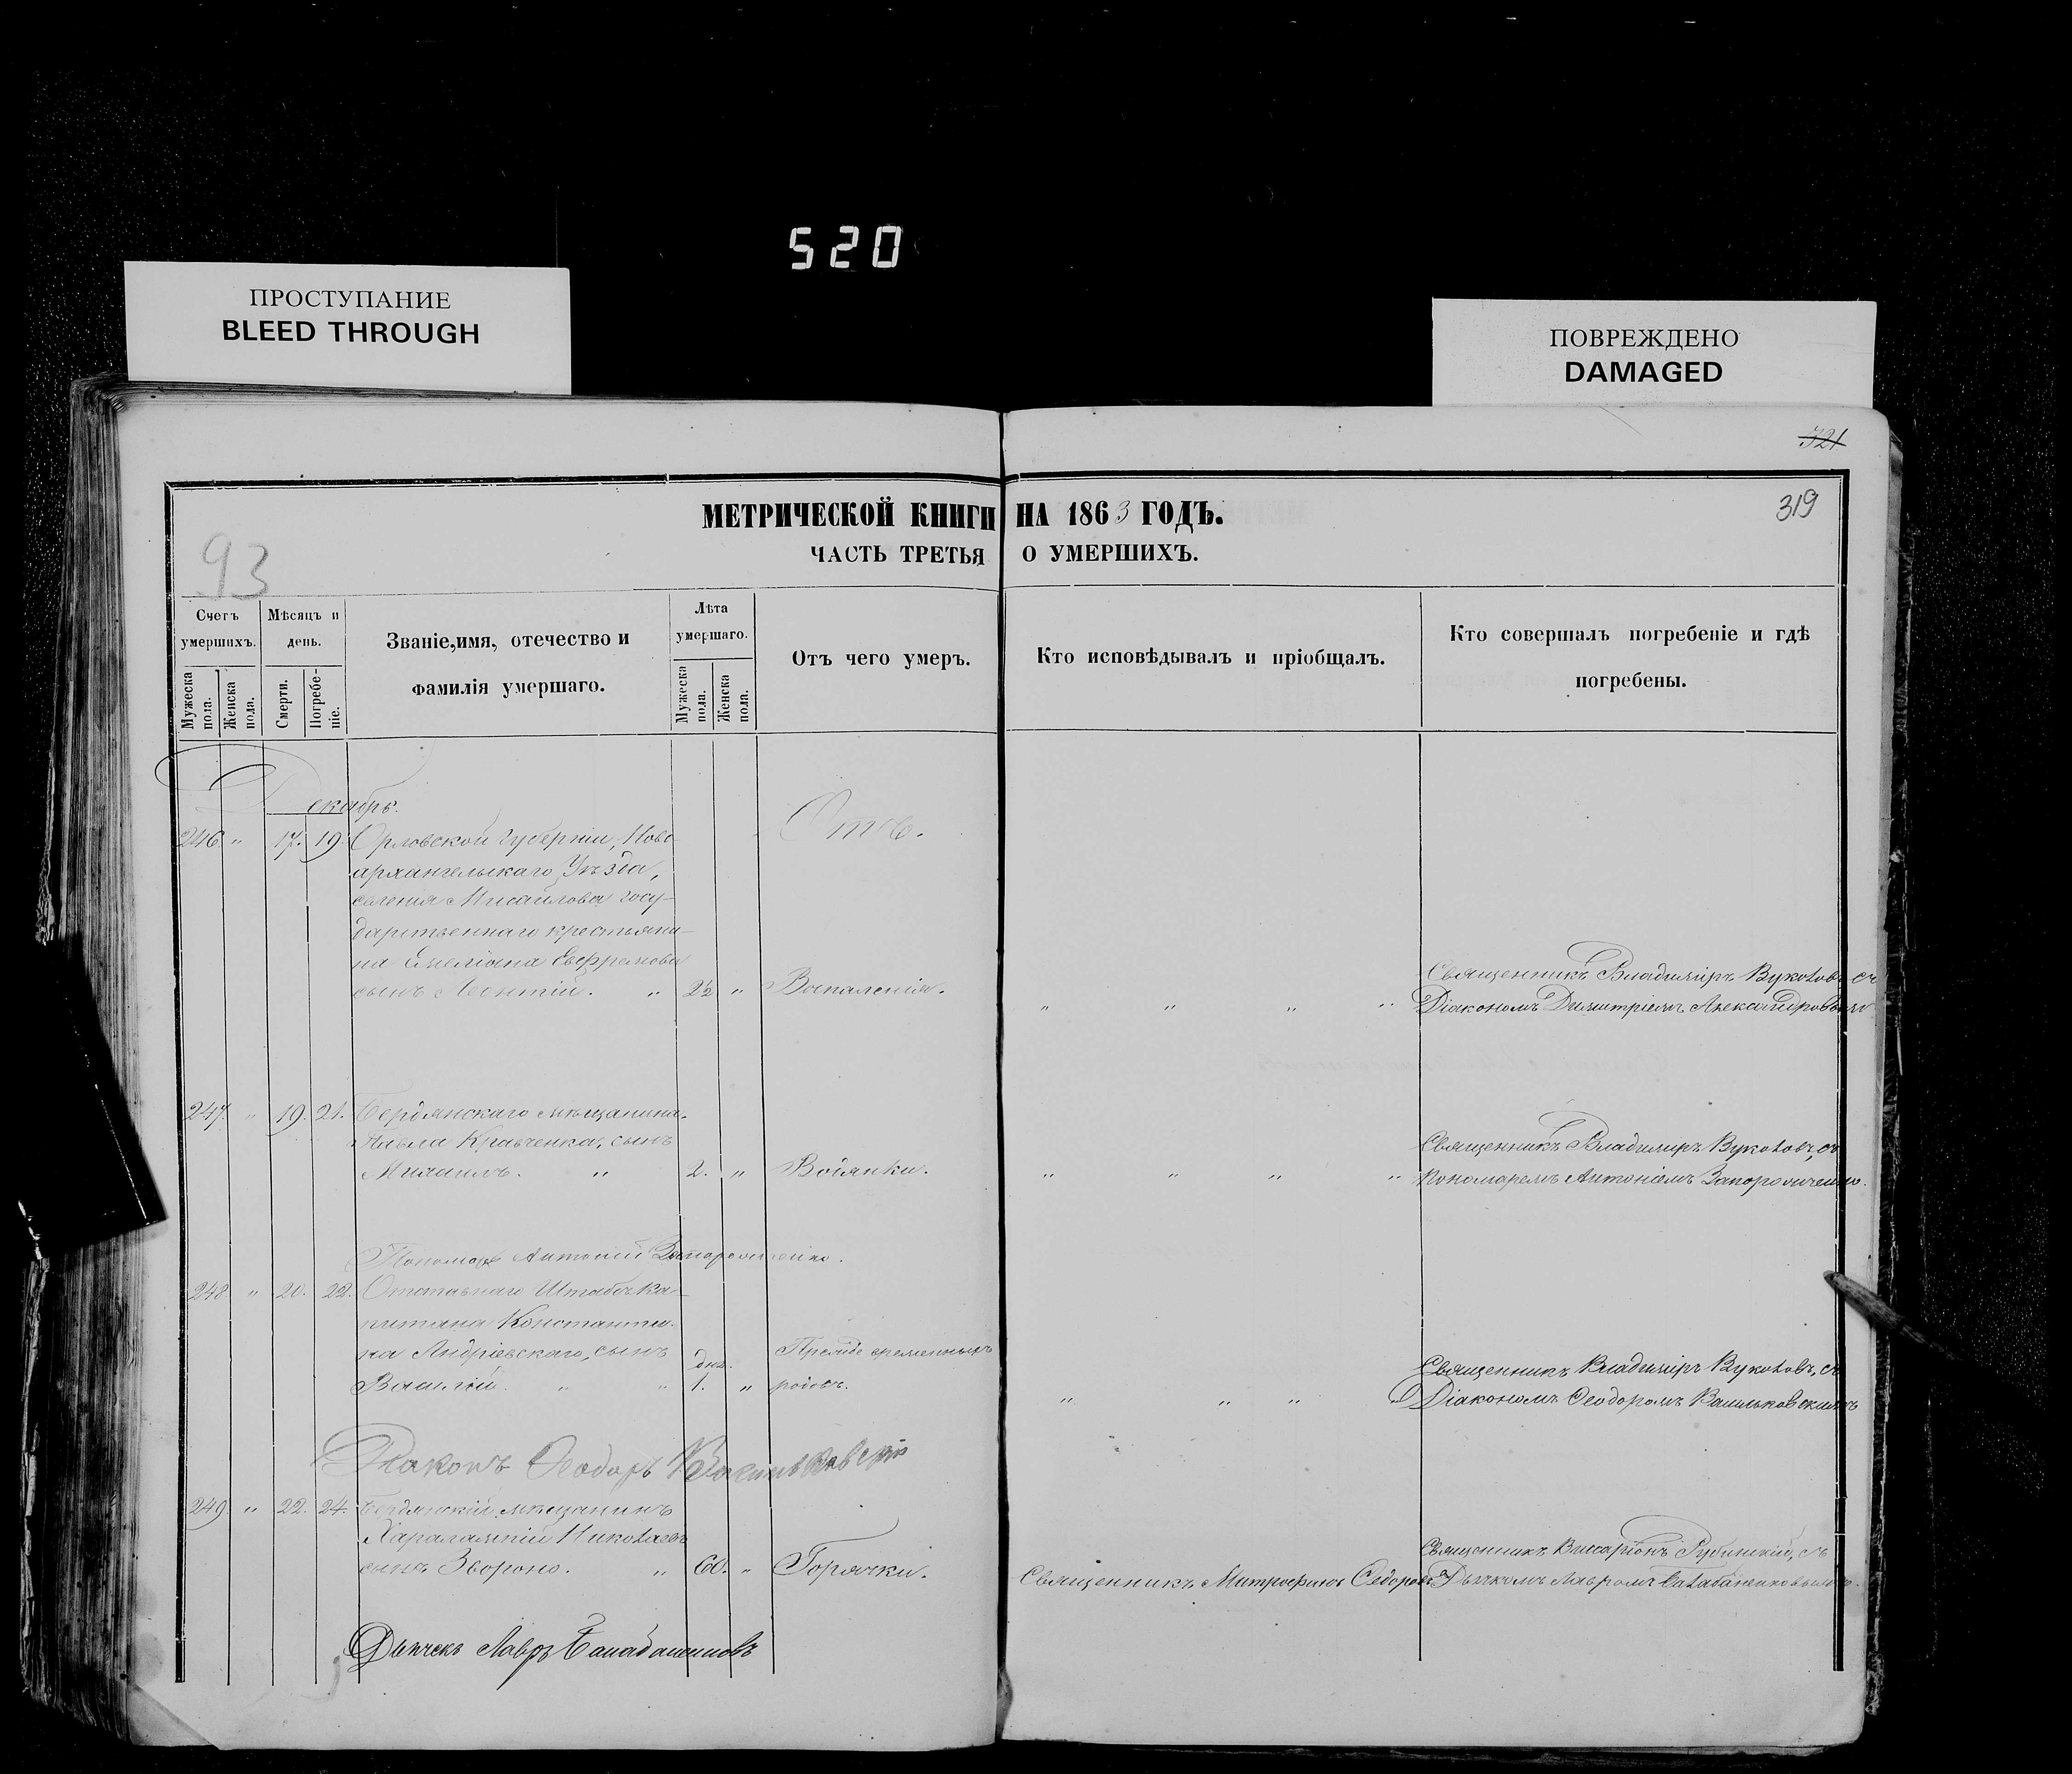 520
ПРОСТУПАНИЕ
BLEED THROUGH
ПОВРЕЖДЕНО
DAMAGED
321
319
93
МЕТРИЧЕСКОЙ КНИГИ НА 1863 ГОДЪ.
ЧАСТЬ ТРЕТЬЯ О УМЕРШИХЪ.
Счетъ умершихъ.
Мужеска пола.
Женска пола.
Мѣсяцъ и день.
Смерти.
Погребеніе.
Званіе, имя, отечество и
фамилія умершаго.
Лѣта умершаго.
Мужеска пола.
Женска пола.
Отъ чего умеръ.
Кто исповѣдывалъ и пріобщалъ.
Кто совершалъ погребеніе и гдѣ
погребены.
Декабрь.
Отъ.
246 " 17. 19. Орловской губерніи, Ново-
архангельскаго Уѣзда,
селенія Михайлова госу-
дарственнаго крестьяни-
на Емеліана Евфремова
сынъ Леонтій. " 2½ " Воспаленія. " " " "
Священникъ Владиміръ Вукотовъ съ
Діакономъ Димитріемъ Александровымъ
247. " 19. 21. Бердянскаго мѣщанина
Павла Кравченка, сынъ
Михаилъ. " 2. " Водянки. " " " "
Священникъ Владиміръ Вукотовъ, съ
Пономаремъ Антоніемъ Запорожченко.
Пономарь Антоній Запорожченко.
248 " 20. 22. Отставнаго Штабсъ Ка-
питана Константи-
на Андріевскаго, сынъ
Василій. " " дня. 1. " Преждевременныхъ
родовъ. " " " "
Священникъ Владиміръ Вукотовъ, съ
Діакономъ Ѳеодоромъ Васильковскимъ
Діаконъ Ѳеодоръ Васильковскій
249. " 22. 24. Бердянскій мѣщанинъ
Харалампій Николаевъ
сынъ Звороно. " 60. " Горячки.
Священникъ Митрофанъ Ѳедоровъ
Священникъ Виссаріонъ Рубинскій, съ
Дьячкомъ Лавромъ Балабаненковымъ.
Дьячекъ Лавръ Балабаненковъ